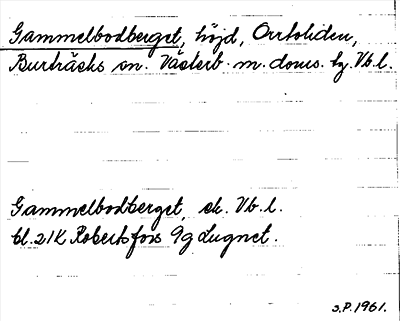 Gammelbodberget, höjd, Orrtoliden,
Burträsks sn. Västerb. m. doms. hg. Vb. l.
Gammelbodberget, ek. Vb. l.
bl. 21K Robertsfors 9g Lugnet.
S.P. 1961.